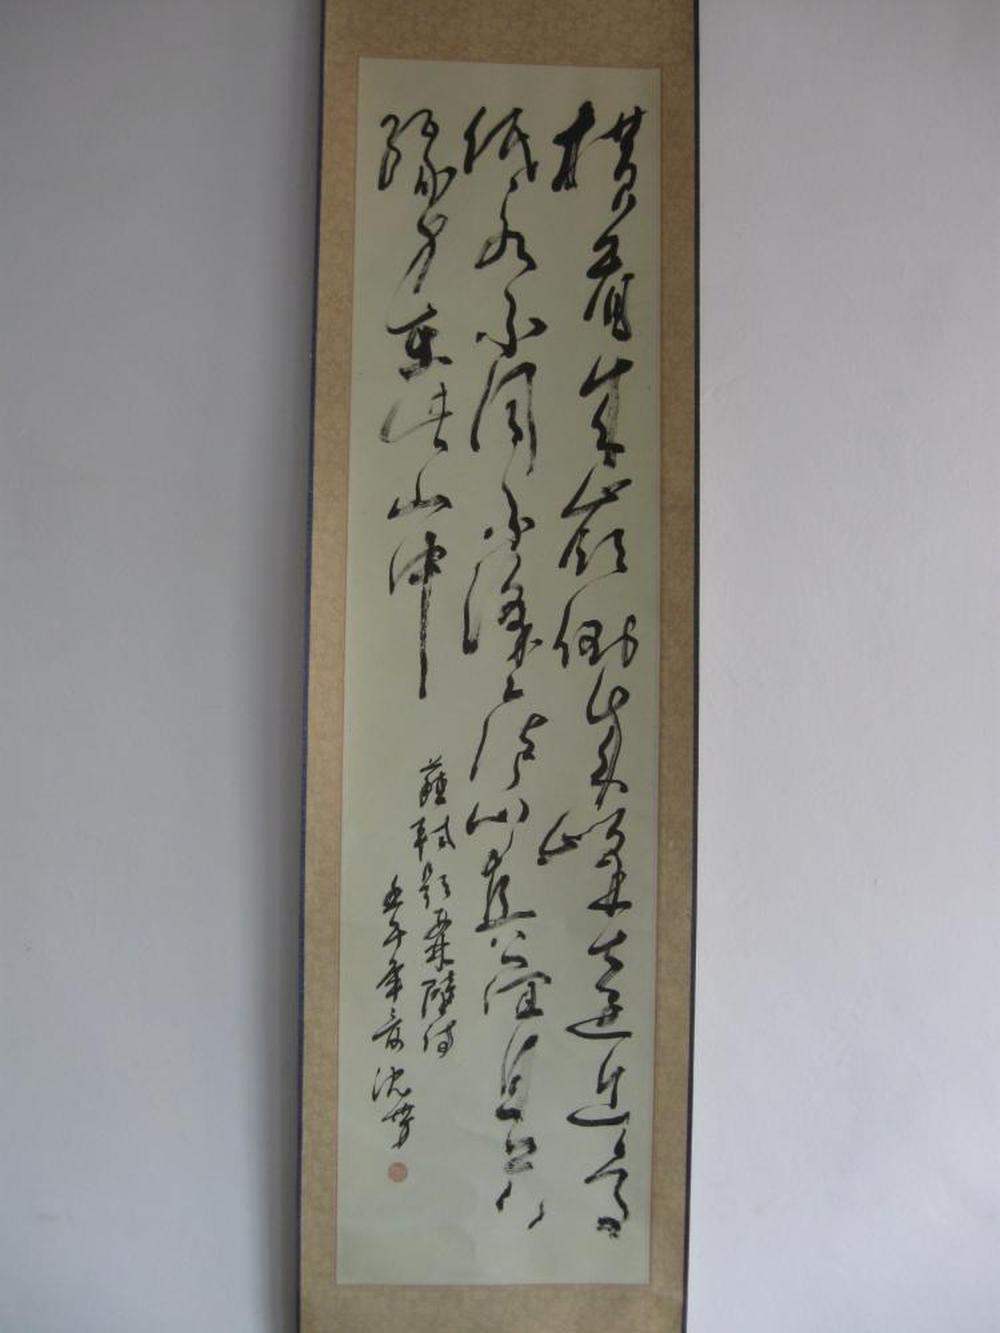 橫看成嶺側成峰遠近高
低各不同不識廬山真面目只
緣身在此山中
蘇軾題西林壁詩
壬午年夏沈芳